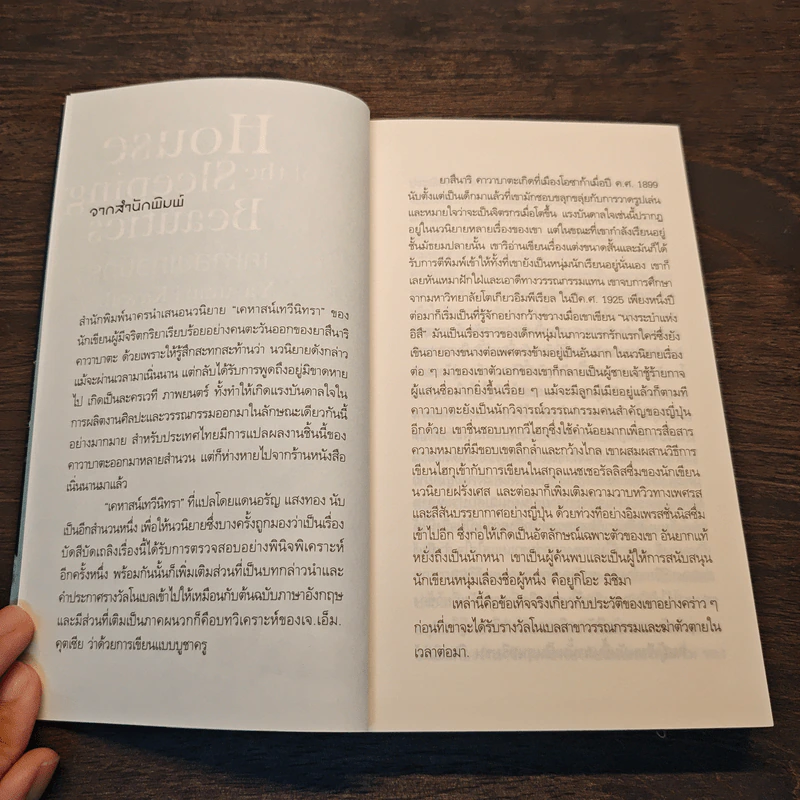 จากสำนักพิมพ์
สำนักพิมพ์นาครนำเสนอนวนิยาย “เคหาสน์เทวีนิทรา” ของ
นักเขียนผู้มีจริตกริยาเรียบร้อยอย่างคนตะวันออกของยาสึนาริ
คาวาบาตะ ด้วยเพราะให้รู้สึกสะทกสะท้านว่า นวนิยายดังกล่าว
แม้จะผ่านเวลามาเนิ่นนาน แต่กลับได้รับการพูดถึงอยู่มิขาดหาย
ไป เกิดเป็นละครเวที ภาพยนตร์ ทั้งทำให้เกิดแรงบันดาลใจใน
การผลิตงานศิลปะและวรรณกรรมออกมาในลักษณะเดียวกันนี้
อย่างมากมาย สำหรับประเทศไทยมีการแปลผลงานชิ้นนี้ของ
คาวาบาตะออกมาหลายสำนวน แต่ก็ห่างหายไปจากร้านหนังสือ
เนิ่นนานมาแล้ว
“เคหาสน์เทวีนิทรา” ที่แปลโดยแดนอรัญ แสงทอง นับ
เป็นอีกสำนวนหนึ่ง เพื่อให้นวนิยายซึ่งบางครั้งถูกมองว่าเป็นเรื่อง
บัดสีบัดเถลิงเรื่องนี้ได้รับการตรวจสอบอย่างพินิจพิเคราะห์
อีกครั้งหนึ่ง พร้อมกันนั้นก็เพิ่มเติมส่วนที่เป็นบทกล่าวนำและ
คำประกาศรางวัลโนเบลเข้าไปให้เหมือนกับต้นฉบับภาษาอังกฤษ
และมีส่วนที่เติมเป็นภาคผนวกก็คือบทวิเคราะห์ของเจ.เอ็ม.
คุตเซีย ว่าด้วยการเขียนแบบบูชาครู
ยาสึนาริ คาวาบาตะเกิดที่เมืองโอซาก้าเมื่อปี ค.ศ. 1899
นับตั้งแต่เป็นเด็กมาแล้วที่เขามักชอบขลุกขลุ่ยกับการวาดรูปเล่น
และหมายใจว่าจะเป็นจิตรกรเมื่อโตขึ้น แรงบันดาลใจเช่นนี้ปรากฏ
อยู่ในนวนิยายหลายเรื่องของเขา แต่ในขณะที่เขากำลังเรียนอยู่
ชั้นมัธยมปลายนั้น เขาริอ่านเขียนเรื่องแต่งขนาดสั้นและมันก็ได้
รับการตีพิมพ์เข้าให้ทั้งที่เขายังเป็นหนักเรียนอยู่นั่นเอง เขาก็
เลยหันเหมาฝักใฝ่และเอาดีทางวรรณกรรมแทน เขาจบการศึกษา
จากมหาวิทยาลัยโตเกียวอิมพีเรียล ในปีค.ศ. 1925 เพียงหนึ่งปี
ต่อมาก็เริ่มเป็นที่รู้จักอย่างกว้างขวางเมื่อเขาเขียน “นางระบำแห่ง
อิสึ” มันเป็นเรื่องราวของเด็กหนุ่มในภาวะแรกรักแรกใคร่ซึ่งยัง
เขินอายอางขนางต่อเพศตรงข้ามอยู่เป็นอันมาก ในนวนิยายเรื่อง
ต่อ ๆ มาของเขาตัวเอกของเขาก็กลายเป็นผู้ชายเจ้าชู้ร้ายกาจ
ผู้แสนซื่อมากยิ่งขึ้นเรื่อย ๆ แม้จะมีลูกมีเมียอยู่แล้วก็ตามที
คาวาบาตะยังเป็นนักวิจารณ์วรรณกรรมคนสำคัญของญี่ปุ่น
อีกด้วย เขาชื่นชอบบทวีไฮกุซึ่งใช้คำน้อยมากเพื่อการสื่อสาร
ความหมายที่มีขอบเขตลึกล้ำและกว้างไกล เขาผสมผสานวิธีการ
เขียนไฮกุเข้ากับการเขียนในสกุลแนชเชอรัลลิสซึ่มของนักเขียน
นวนิยายฝรั่งเศส และต่อมาก็เพิ่มเติมความวาบหวิวทางเพศรส
และสีสันบรรยากาศอย่างญี่ปุ่น ด้วยท่วงทีอย่างอิมเพรสชั่นนิสซึ่ม
เข้าไปอีก ซึ่งก่อให้เกิดเป็นอัตลักษณ์เฉพาะตัวของเขา อันยากแท้
หยั่งถึงเป็นนักหนา เขาเป็นผู้ค้นพบและเป็นผู้ให้การสนับสนุน
นักเขียนหนุ่มเลื่องชื่อผู้หนึ่ง คือยูกิโอะ มิชิมา
เหล่านี้คือข้อเท็จจริงเกี่ยวกับประวัติของเขาอย่างคร่าว ๆ
ก่อนที่เขาจะได้รับรางวัลโนเบลสาขาวรรณกรรมและฆ่าตัวตายใน
เวลาต่อมา.